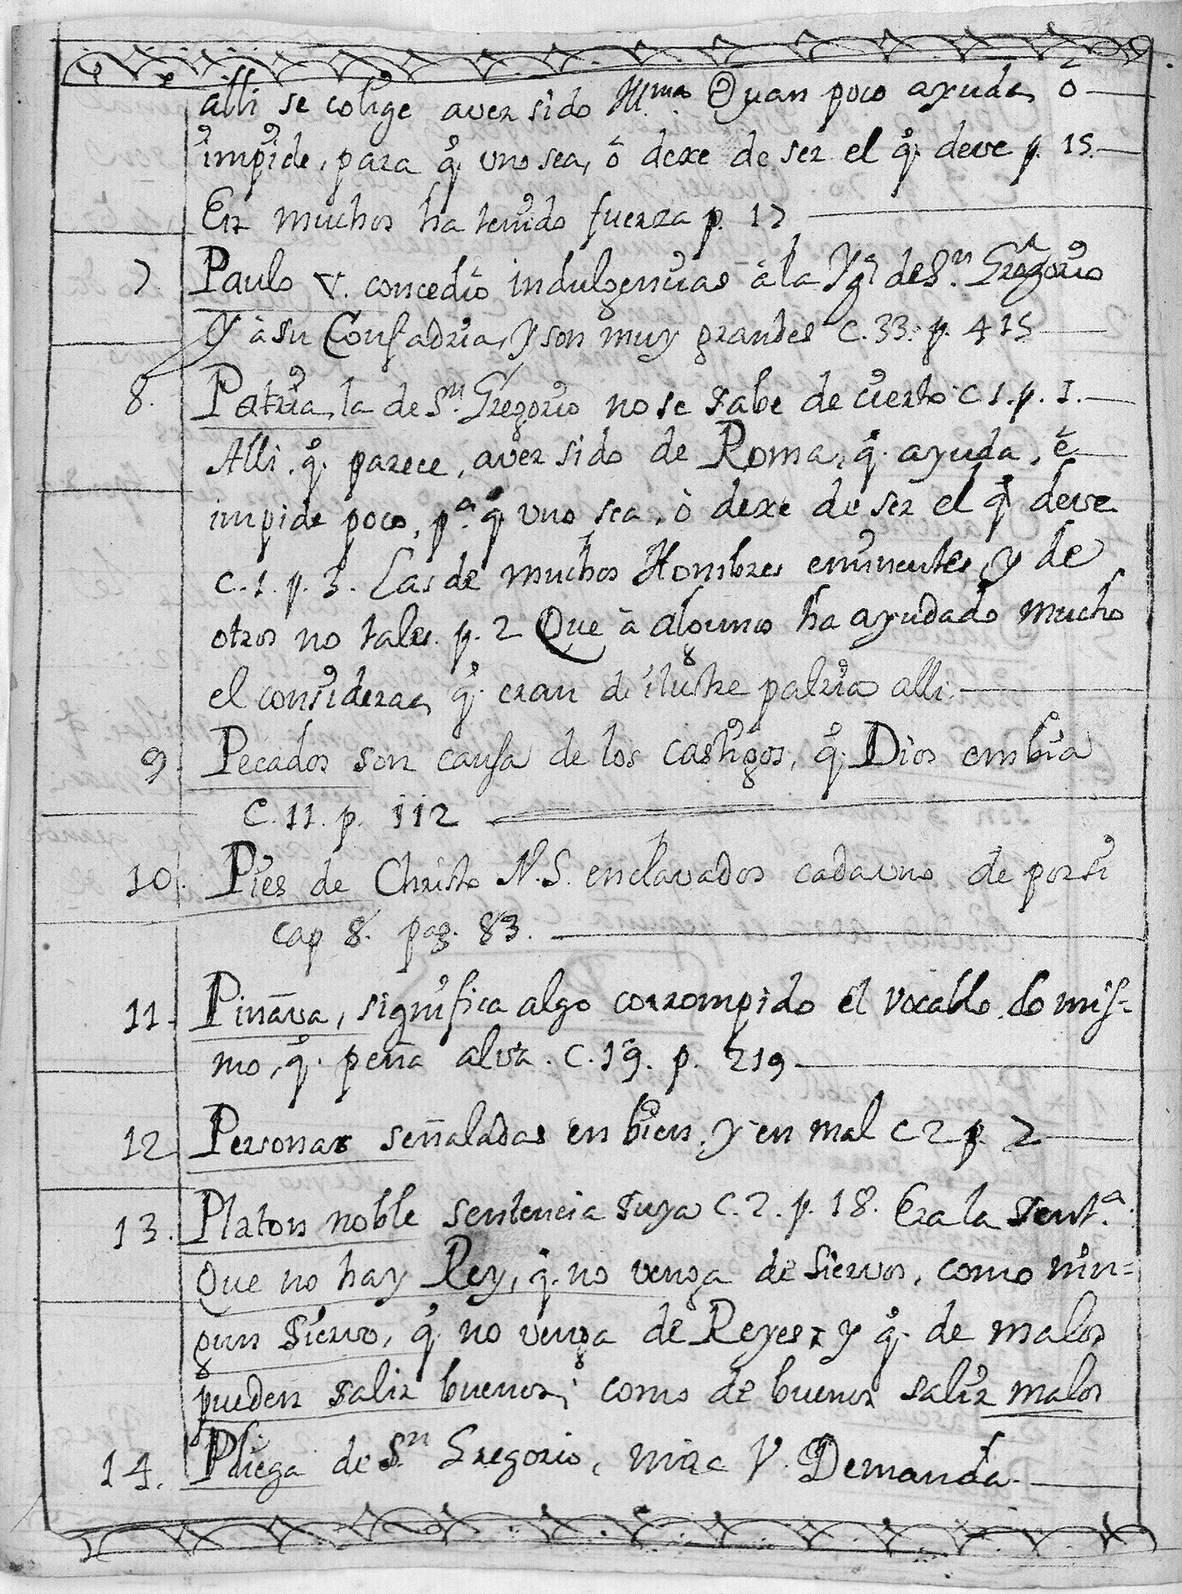 alli se colige aver sido Ill.ma Quan poco ayuda, ò
impide, para q.e uno sea, ò dexe de ser el q.e deve p. 15.
En muchos ha tenido fuerza p. 17
7. Paulo V. concedio indulgencias à la Ygl.a de S.n Gregorio
Y à su Confadria, y son muy grandes C. 33. p. 415
8. Patria, la de S.n Gregorio no se sabe de cierto C 1. p. 1.
Alli, q.e parece, aver sido de Roma, q.e ayuda, è
impide poco, p.a q.e uno sea, ò dexe de ser el q.e deve
C. 1. p. 3. Las de muchos Hombres eminentes, y de
otros no tales. p. 2 Que à algunos ha ayudado mucho
el considerar, q.e eran de ilustre patria alli.
9 Pecados son causa de los castigos, q.e Dios embia
C. 11. p. 112
10. Pies de Christo N. S. enclavados cada uno de por si
cap 8. pag. 83.
11. Pinava, significa algo corrompido el vocablo lo mis-
mo, q.e peña alva. C. 19. p. 219
12 Personas señaladas en bien, y en mal C 2 p. 2
13. Platon noble sentencia suya C. 2. p. 18. Era la Sent.a
Que no hay Rey, q.e no venga de Siervos, como nin=
gun Siervo, q.e no venga de Reyes: y q.e de malos
pueden salir buenos, como de buenos salir malos
14. Pliega de S.n Gregorio, mira V. Demanda.